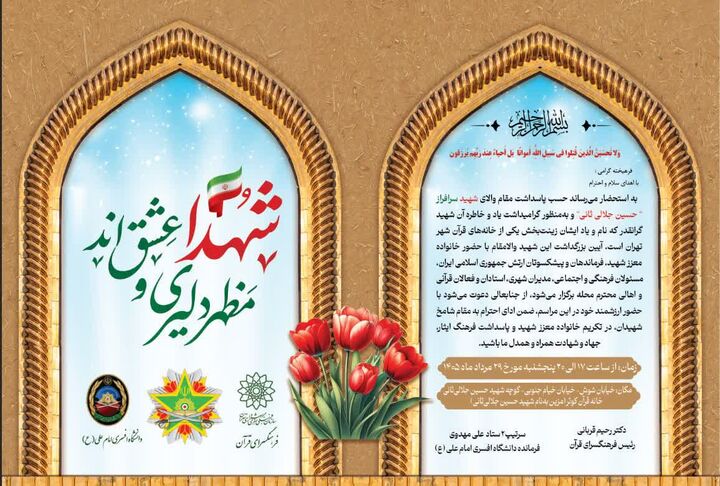 بسم الله الرحمن الرحیم
وَلا تَحسَبَنَّ الَّذینَ قُتِلوا فی سَبیلِ اللَّهِ أَمواتًا بَل أَحیاءٌ عِندَ رَبِّهِم یُرزَقونَ
فرهیخته گرامی؛
با اهدای سلام و احترام
به استحضار می‌رساند حسب پاسداشت مقام والای شهید سرافراز
" حسین جلالی ثانی" و به‌منظور گرامیداشت یاد و خاطره آن شهید
گرانقدر که نام و یاد ایشان زینت‌بخش یکی از خانه‌های قرآن شهر
تهران است، آیین بزرگداشت این شهید والامقام با حضور خانواده
معزز شهید، فرماندهان و پیشکسوتان ارتش جمهوری اسلامی ایران،
مسئولان فرهنگی و اجتماعی، مدیران شهری، استادان و فعالان قرآنی
و اهالی محترم محله برگزار می‌شود، از جنابعالی دعوت می‌شود با
حضور ارزشمند خود در این مراسم، ضمن ادای احترام به مقام شامخ
شهیدان، در تکریم خانواده معزز شهید و پاسداشت فرهنگ ایثار،
جهاد و شهادت همراه و همدل ما باشید.
زمان: از ساعت ۱۷ الی ۲۰ پنجشنبه مورخ ۲۹ مرداد ماه ۱۴۰۵
مکان: خیابان شوش، خیابان خیام جنوبی، کوچه شهید حسین جلالی‌ثانی
خانه قرآن کوثر (مزین به‌نام شهید حسین جلالی‌ثانی)
دکتر رحیم قربانی
رئیس فرهنگسرای قرآن
سرتیپ۲ ستاد علی مهدوی
فرمانده دانشگاه افسری امام علی (ع)
شهدا
مظهر دلیری و
عشق اند
فرهنگسرای قرآن
دانشگاه افسری امام علی (ع)